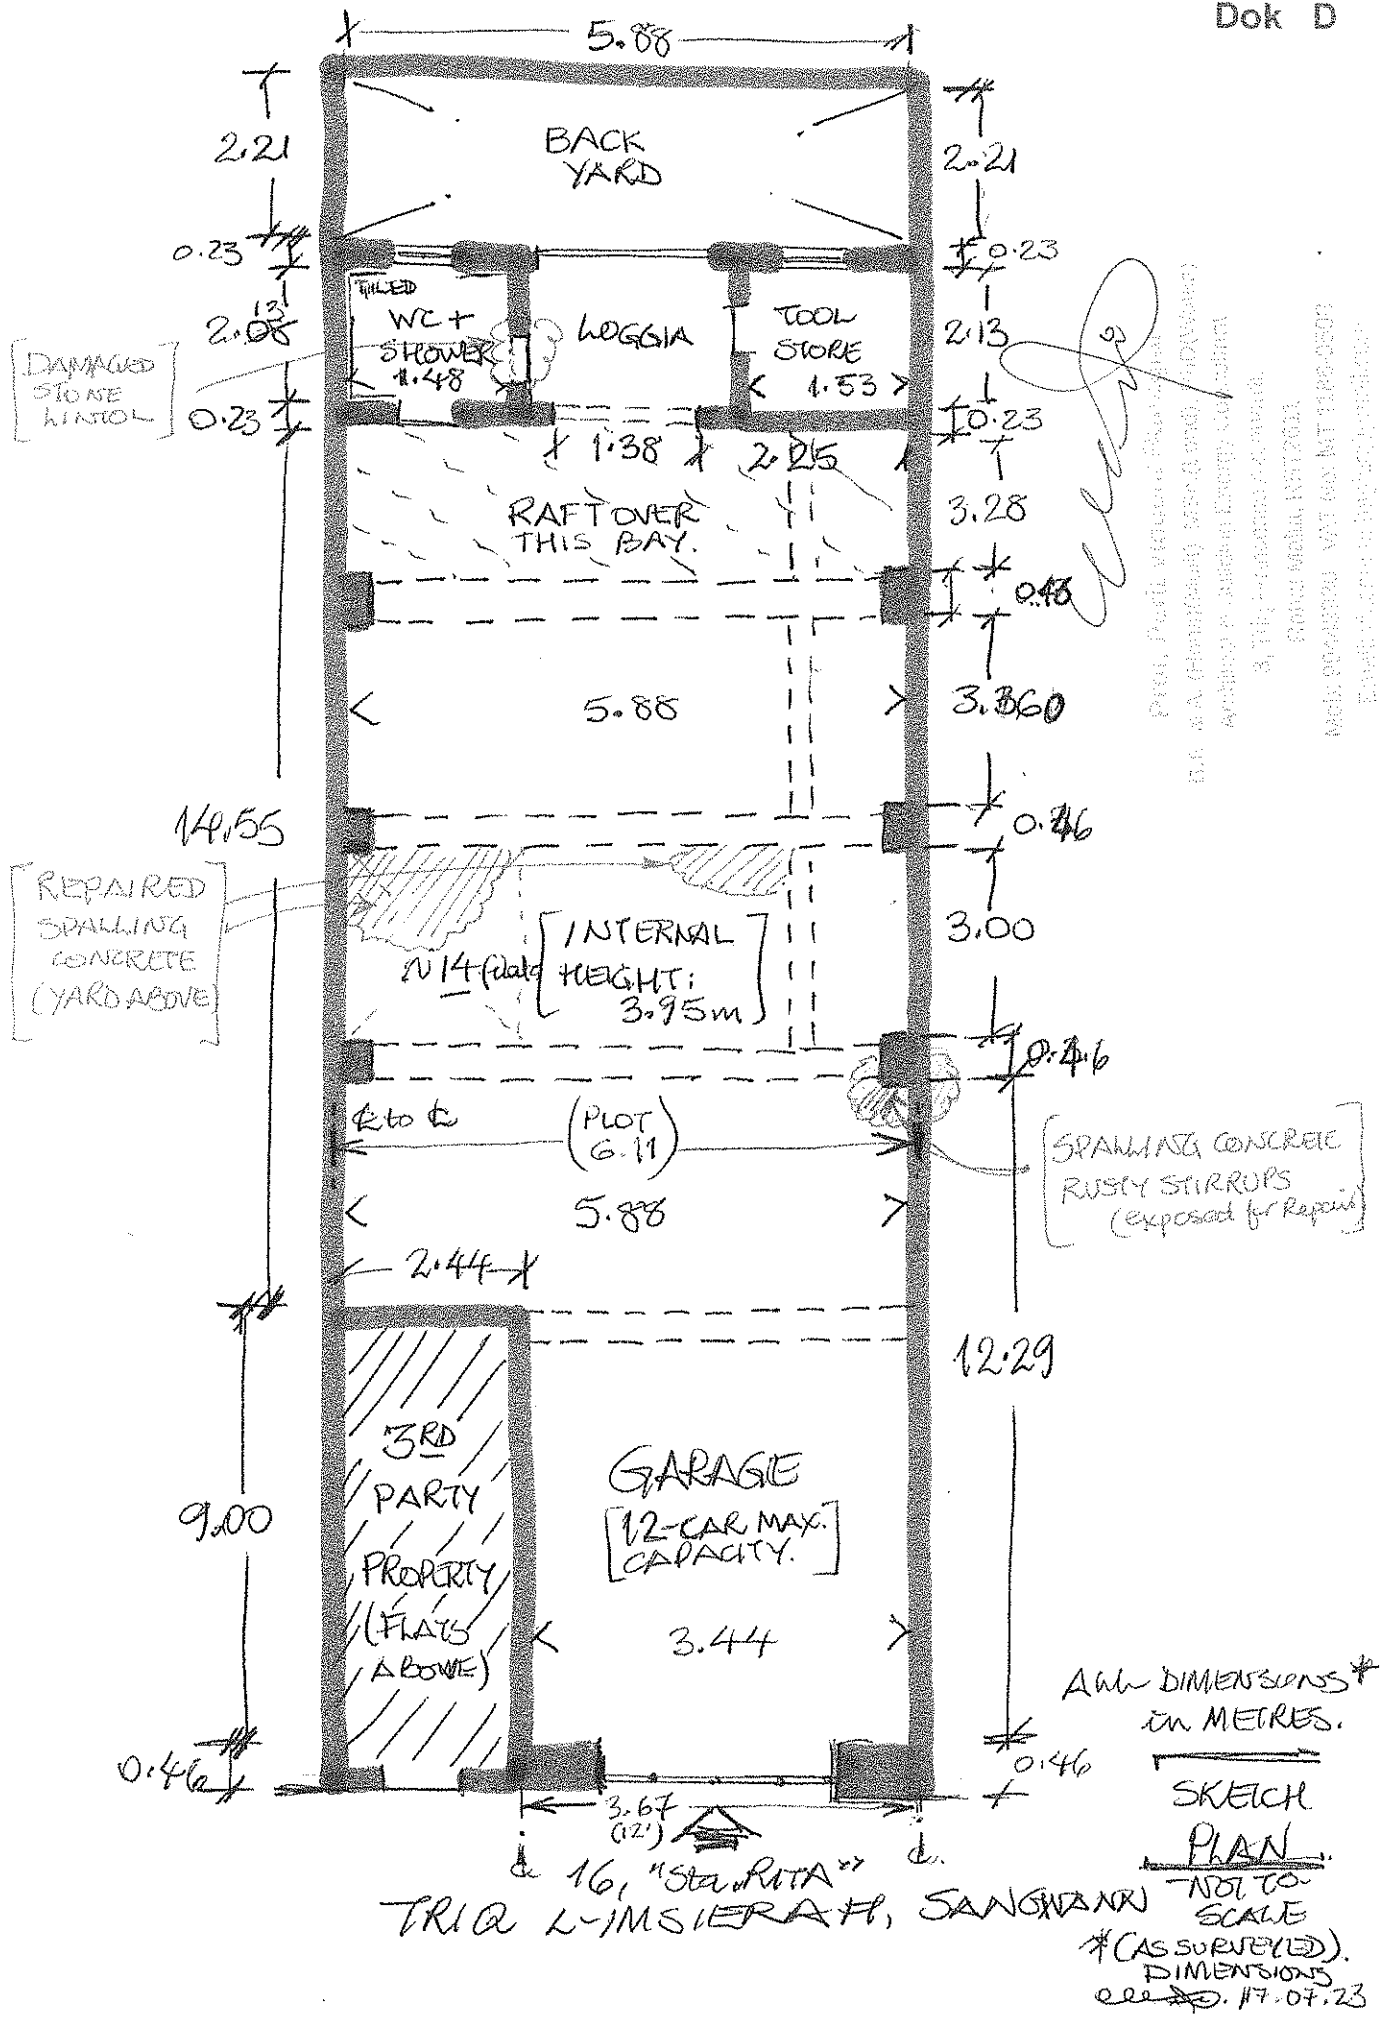 Dok D
5.88
2.21
BACK
YARD
2.21
0.23
0.23
TILED
WC +
SHOWER
1.48
LOGGIA
TOOL
STORE
1.53
2.13
[DAMAGED
STONE
LINTOL]
0.23
0.23
1.38
2.25
RAFT OVER
THIS BAY.
3.28
5.88
14.55
[REPAIRED
SPALLING
CONCRETE
(YARD ABOVE)]
3.00
[INTERNAL
HEIGHT:
3.95m]
℄ to ℄
(PLOT
6.11)
[SPALLING CONCRETE
RUSTY STIRRUPS
(exposed for Repair)]
5.88
2.44
12.29
9.00
3RD
PARTY
PROPERTY
(FLATS
ABOVE)
GARAGE
[12-CAR MAX.
CAPACITY.]
3.44
ALL DIMENSIONS*
in METRES.
0.46
0.46
3.67
(12')
℄
℄
SKETCH
PLAN
NOT TO
SCALE
16, "Sta. RITA"
TRIQ L-IMSIERAH, SANGWANN
*(AS SURVEYED).
DIMENSIONS
17.07.23